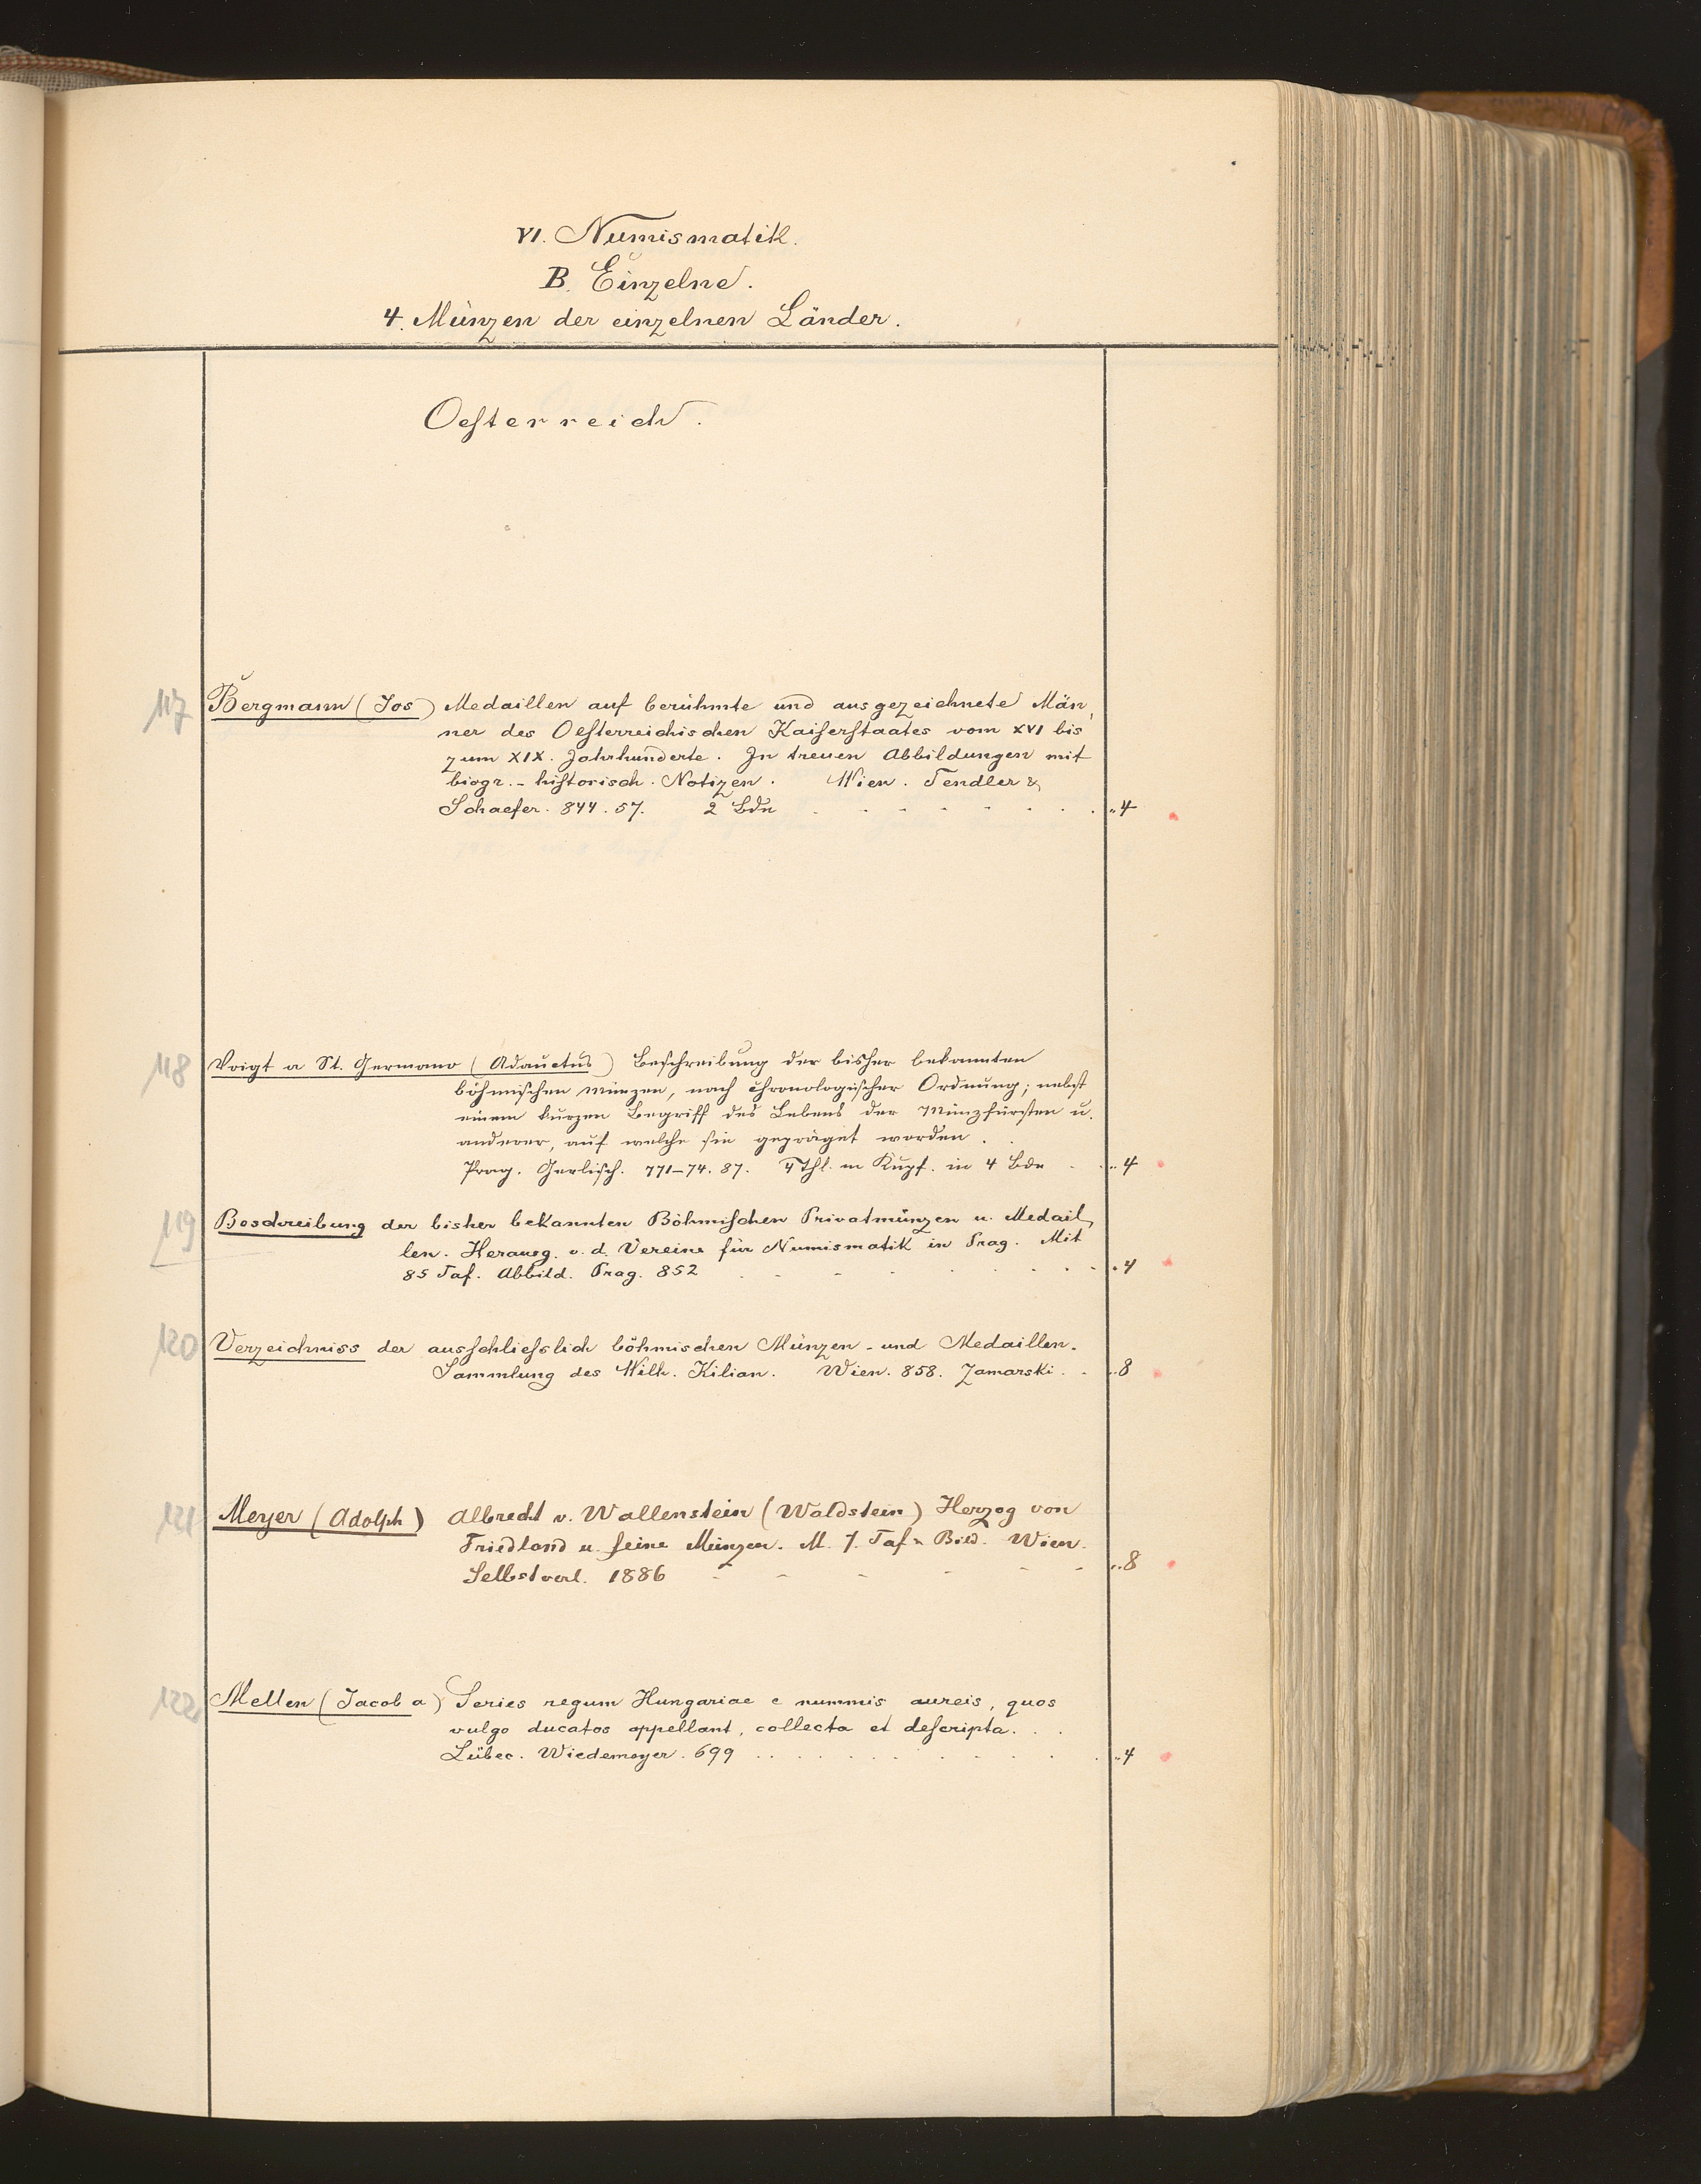 VI. Numismatik.
B. Einzelne.
4. Münzen der einzelnen Länder.
Oesterreich.
117 Bergmann (Jos) Medaillen auf berühmte und ausgezeichnete Män,
ner des Oesterreichischen Kaiserstaates vom XVI bis
zum XIX. Jahrhunderte. In treuen Abbildungen mit
biogr.-historisch. Notizen. Wien. Tendler &
Schaefer. 844.57. 2 Bde ..4
118 Voigt a St. Germano (Adauctus) Beschreibung der bisher bekannten
böhmischen Münzen, nach chronologischer Ordnung; nebst
einem kurzen Begriff des Lebens der Münzfürsten u.
anderer, auf welche sie gepräget worden.
Prag. Gerlisch. 771-74.87. 4 Thl. m Kupf. in 4 Bde ..4
119 Beschreibung der bisher bekannten Böhmischen Privatmünzen u. Medail,
len. Herausg. v. d. Vereine für Numismatik in Prag. Mit
85 Taf. Abbild. Prag. 852 .4
120 Verzeichniss der ausschliesslich böhmischen Münzen- und Medaillen-
Sammlung des Wilh. Kilian. Wien. 858. Zamarski. ..8
121 Meyer (Adolph) Albrecht v. Wallenstein (Waldstein) Herzog von
Friedland u. seine Münzen. M. 7. Taf. Bild. Wien.
Selbstverl. 1886 ..8
122 Mellen (Jacob a) Series regum Hungariae e nummis aureis, quos
vulgo ducatos appellant, collecta et descripta.
Lübec. Wiedemeyer. 699 ..4